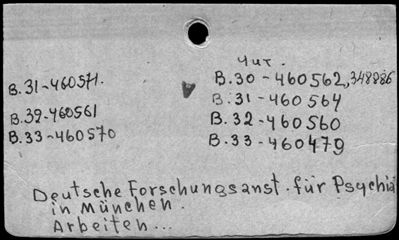 Чит.
В.31-460571.
В.39-460561
В.33-460570
В.30-460562,348886
В.31-460564
В.32-460560
В.33-460479
Deutsche Forschungsanst. für Psychia
in München.
Arbeiten...